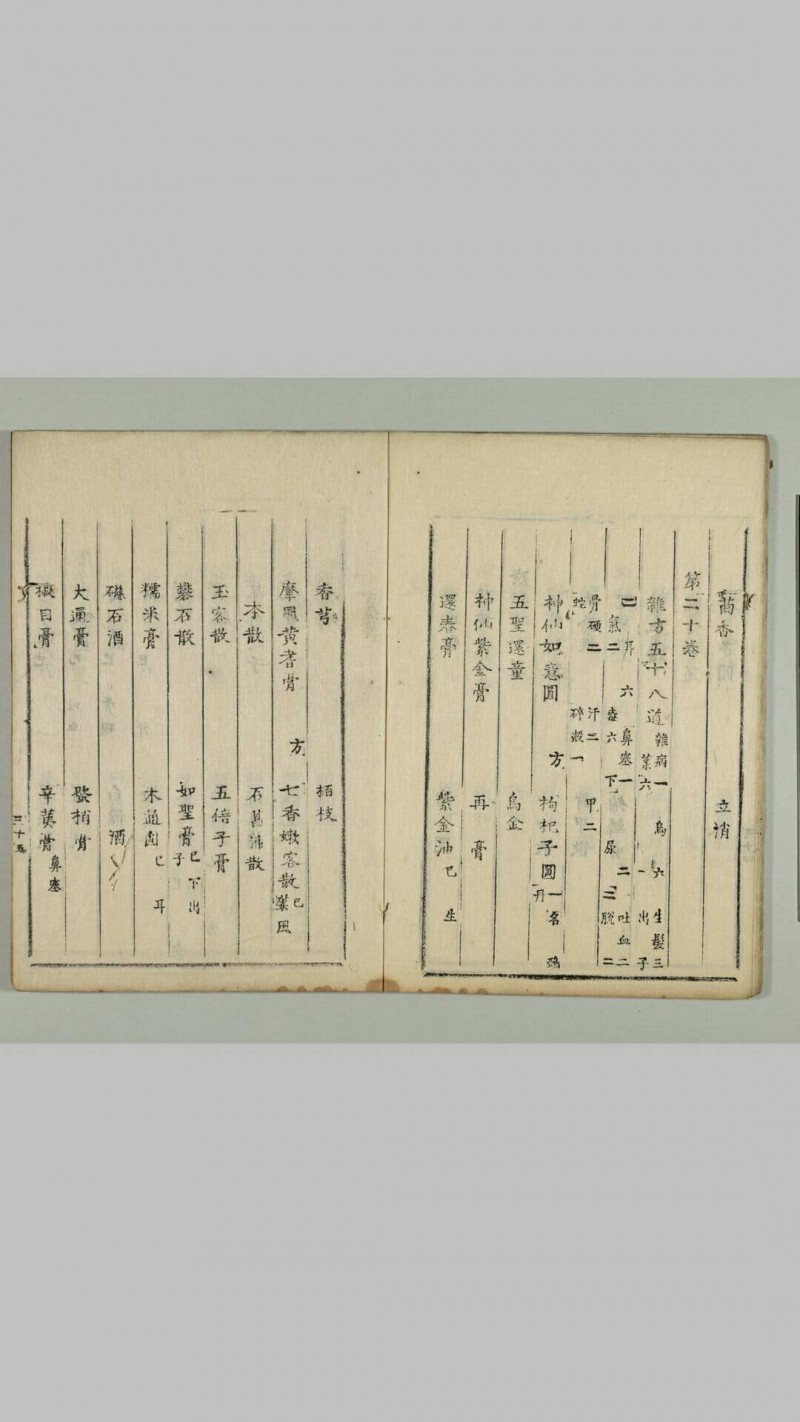 茴香 立消
第二十卷
雜方五十八道 雜病一 葉六 烏六 生髮三
耳六 鼻塞一 一出子
氣二 毒六 下 尿三 二吐血二 脫二
骨硬二 汗二 甲二
蛇 碎殺一
神仙如意圓 方 枸杞子圓 一名 丹
五聖還童 烏金
神仙紫金膏 再膏
還春膏 紫金油 巳 生
香芎 栢枝
摩風黃耆膏 方 七香嫩容散 巳 藥風
本散 石菖蒲散
玉容散 五倍子膏
礬石散 如聖膏 巳下出子
糯米膏 木通圓 巳 耳
磁石酒 酒
大通膏
日膏 辛荑膏 鼻塞
三十五